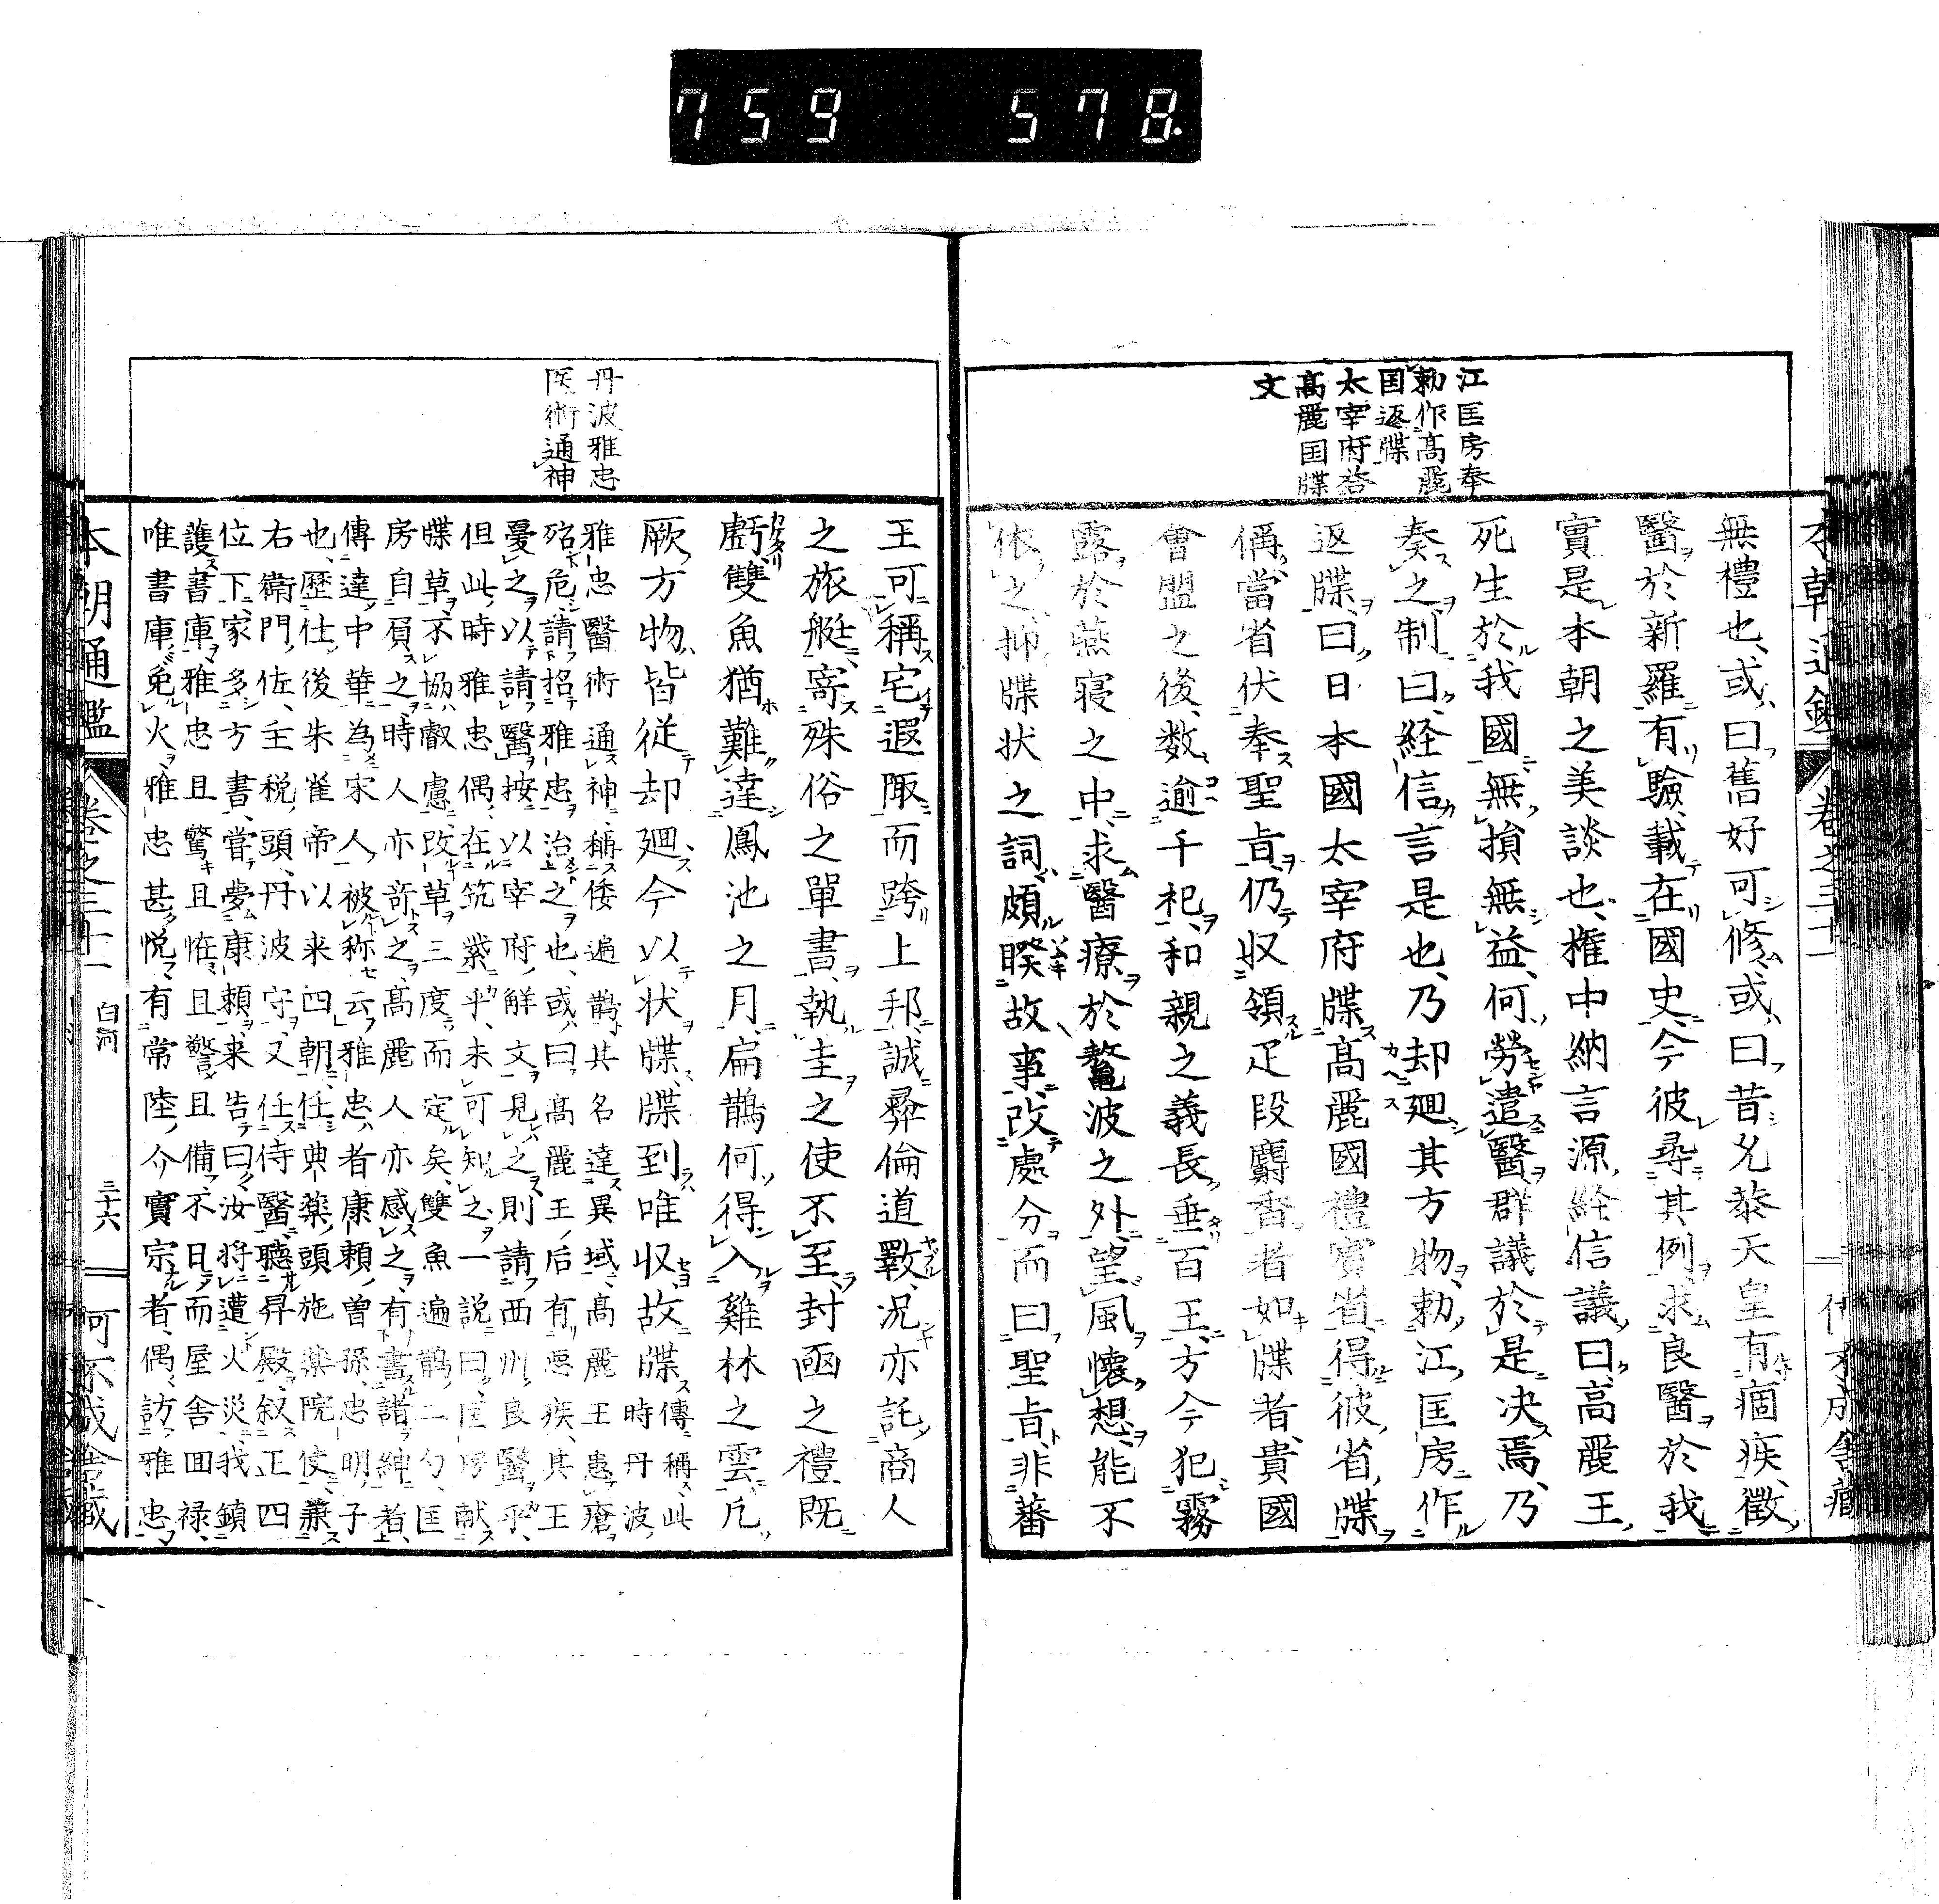 759 578.
江匡房奉
勅作高麗
国返牒
太宰府答
高麗国牒
文
無禮也或曰舊好可修或曰昔允恭天皇有痼疾徵
醫於新羅有驗載在國史今彼尋其例求良醫於我
實是本朝之美談也權中納言源経信議曰高麗王
死生於我國無損無益何勞遣醫群議於是决焉乃
奏之制曰経信言是也乃却廻其方物勅江匡房作
返牒曰日本國太宰府牒高麗國禮賓省得彼省牒
偁當省伏奉聖旨仍收領疋段麝香者如牒者貴國
會盟之後数逾千祀和親之義長垂百王方今犯霧
露於燕寝之中求醫療於鼇波之外望風懷想能不
依之抑牒状之詞頗睽故事改處分而曰聖旨非蕃
王可稱宅遐陬而跨上邦誠彜倫道斁况亦託商人
之旅艇寄殊俗之單書執圭之使不至封函之禮既
虧雙魚猶難達鳳池之月扁鵲何得入雞林之雲凢
厥方物皆従却廻今以状牒牒到唯収故牒
丹波雅忠
医術通神
傳稱此時丹波
雅忠醫術通神稱倭遍鵲其名達異域高麗王患瘡
殆危請招雅忠治之也或曰高麗王后有悪疾其王
憂之以請醫按以宰府解文見之則請西州良醫乎
但此時雅忠偶在筑紫乎未可知之一説曰匡房献
牒草不協叡慮改草三度而定矣雙魚遍鵲二句匡
房自負之時人亦竒之高麗人亦感之有書諸紳者
傳達中華為宋人被称云雅忠者康頼曽孫忠明子
也歴仕後朱雀帝以来四朝任典薬頭施薬院使兼
右衛門佐主税頭丹波守又任侍醫聴昇殿叙正四
位下家多方書嘗夢康頼来告曰汝將遭火災我鎮
護書庫雅忠且驚且恠且警且備不日而屋舎回禄
唯書庫免火雅忠甚悦有常陸介實宗者偶訪雅忠
本朝通鑑 卷之三十一 白河 三十六